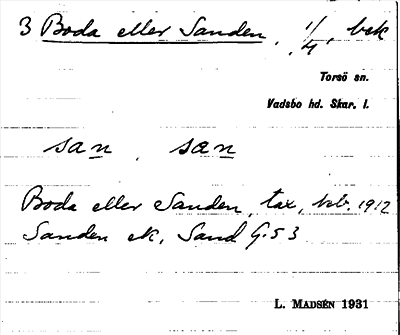 3 Boda eller Sanden, 1/4, bek
Torsö sn.
Vadsbo hd. Skar. l.
san, sæn
Boda eller Sanden, tax, beb. 1912
Sanden ek, Sand G.53
L. MADSÉN 1931